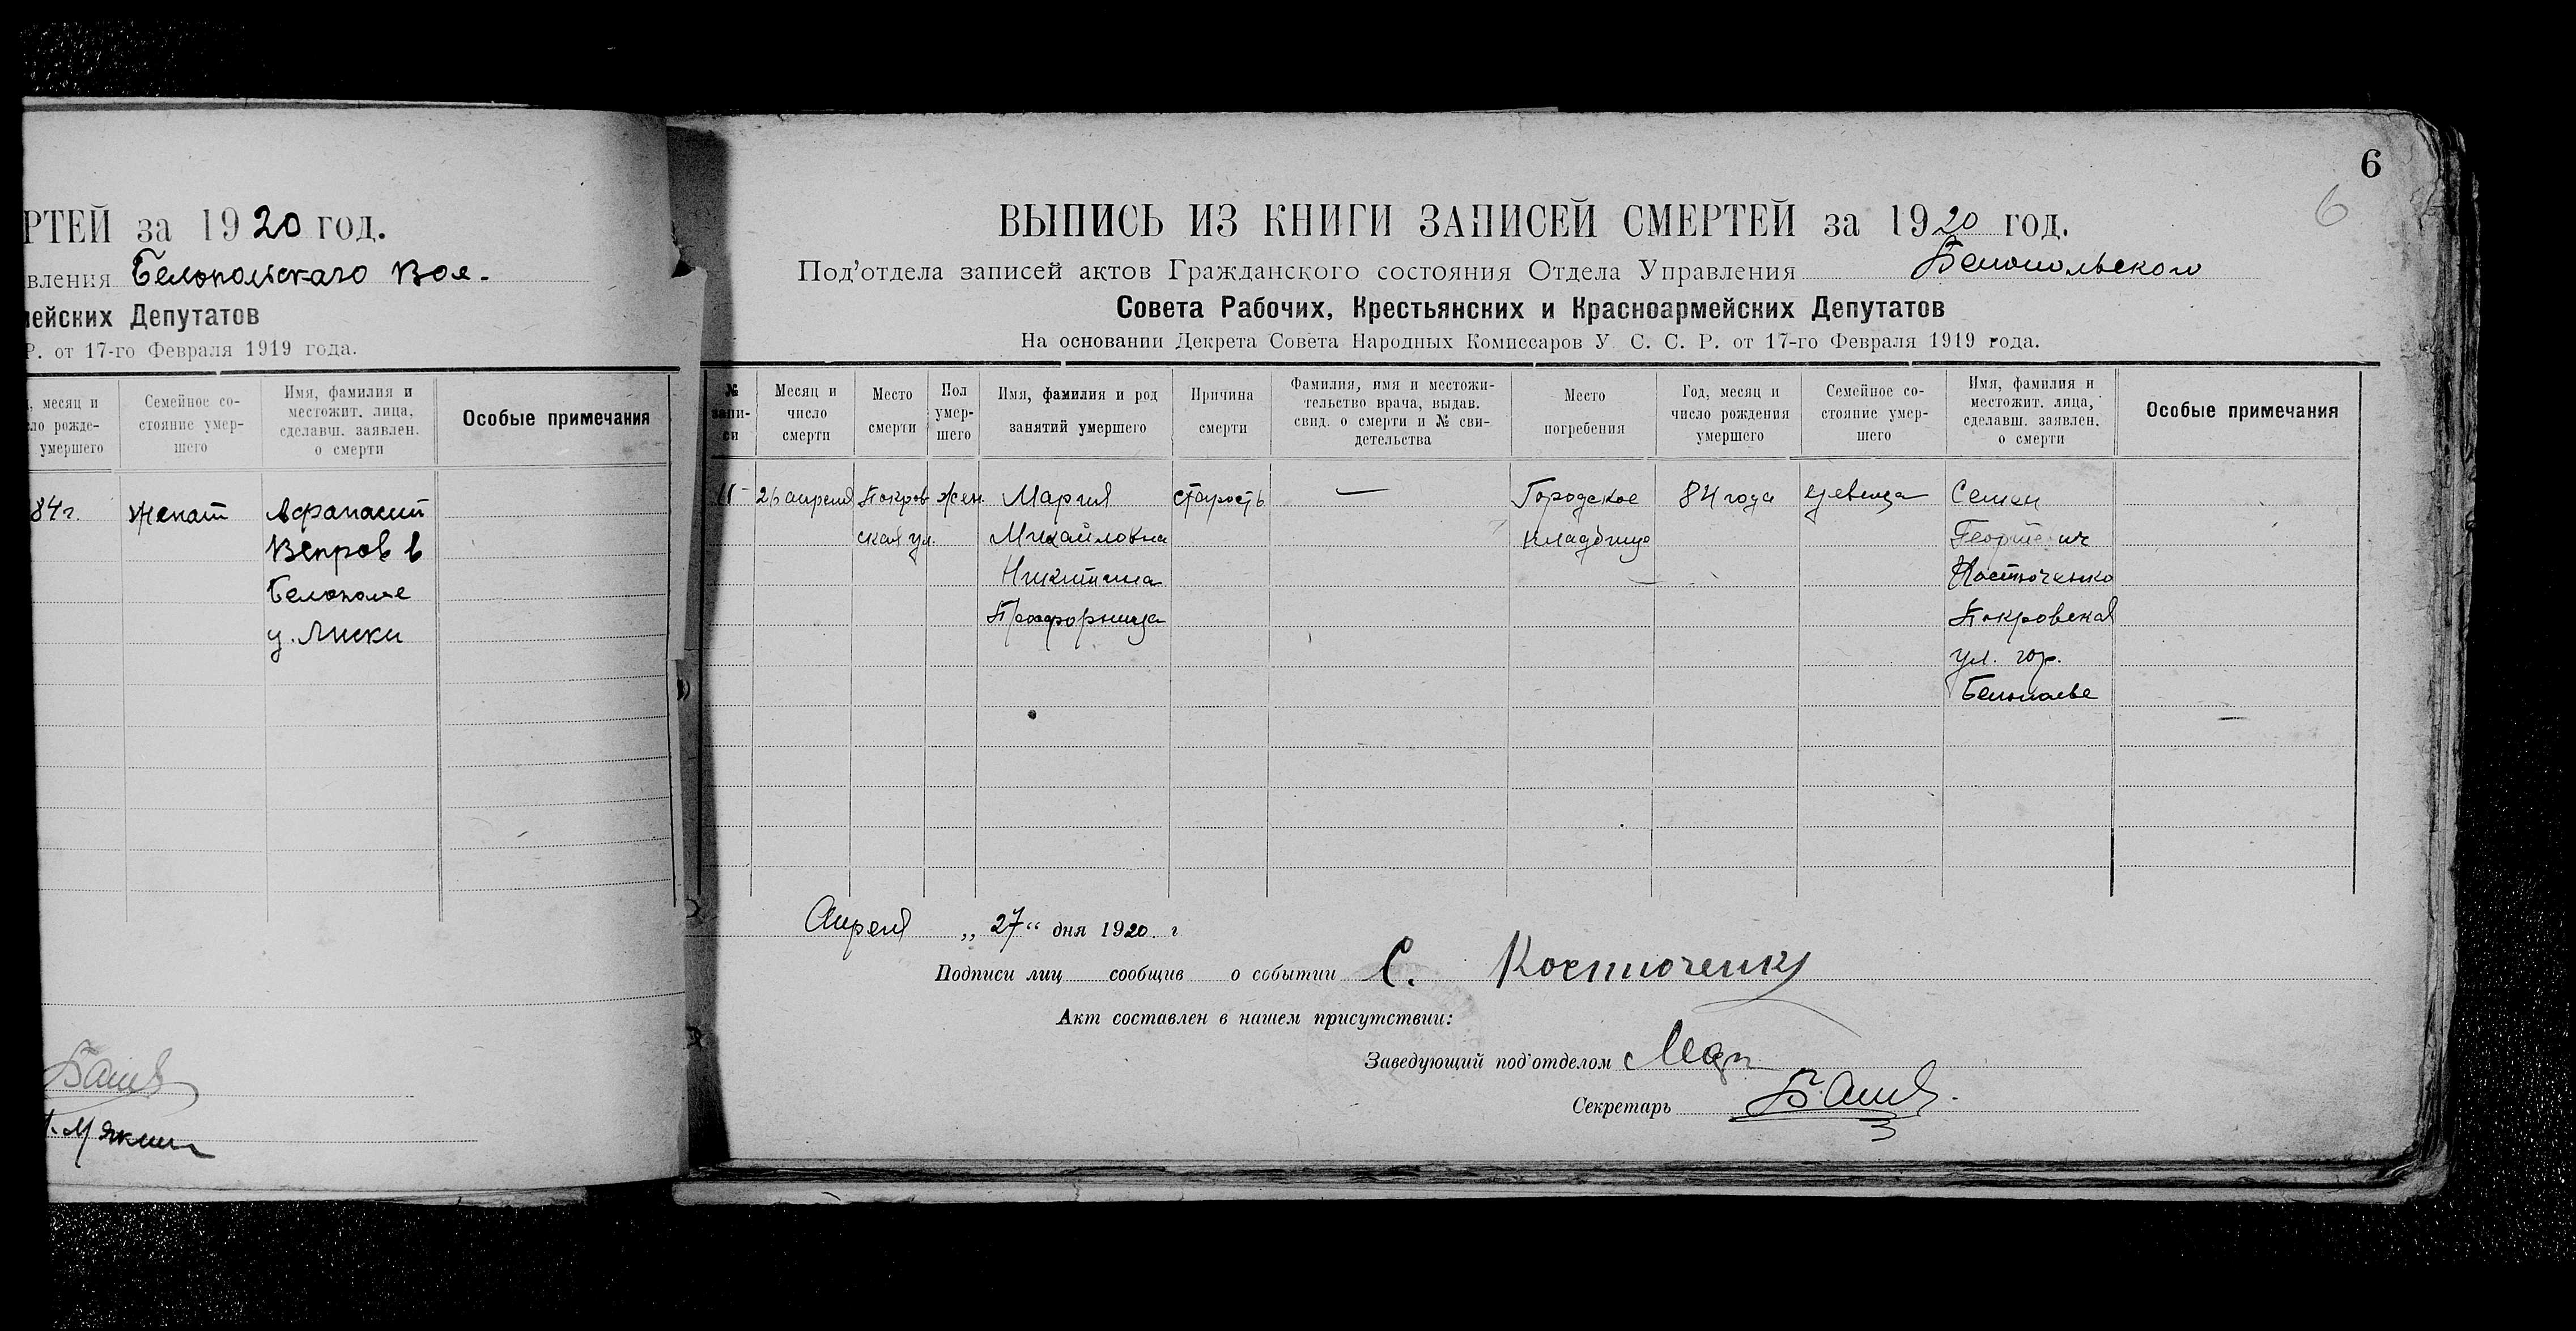 РТЕЙ за 1920 год.
вления Белопольскаго Вол.
мейских Депутатов
Р. от 17-го Февраля 1919 года.
месяц и
ло рожде-
умершего
Семейное со-
стояние умер-
шего
Имя, фамилия и
местожит. лица,
сделавш. заявлен.
о смерти
Особые примечания
84 г.
женат
Афанасий
Вепров в
Белополе
у. Лиски
Мякин
6
6
ВЫПИСЬ ИЗ КНИГИ ЗАПИСЕЙ СМЕРТЕЙ за 1920 год.
Под'отдела записей актов Гражданского состояния Отдела Управления Белопольского
Совета Рабочих, Крестьянских и Красноармейских Депутатов
На основании Декрета Совета Народных Комиссаров У. С. С. Р. от 17-го Февраля 1919 года.
№
запи-
си
Месяц и
число
смерти
Место
смерти
Пол
умер-
шего
Имя, фамилия и род
занятий умершего
Причина
смерти
Фамилия, имя и местожи-
тельство врача, выдав.
свид. о смерти и № сви-
детельства
Место
погребения
Год, месяц и
число рождения
умершего
Семейное со-
стояние умер-
шего
Имя, фамилия и
местожит. лица,
сделавш. заявлен.
о смерти
Особые примечания
26 апреля
Покров
ская ул.
жен.
Мария
Михайловна
Никитина
Просфорница
старость
—
Городское
кладбище
84 года
девица
Семен
Георгиевич
Костюченко
Покровская
ул. гор.
Белополье
Апреля „ 27 “ дня 1920 г
Подписи лиц сообщив о событии С. Костюченко
Акт составлен в нашем присутствии:
Заведующий под'отделом
Секретарь